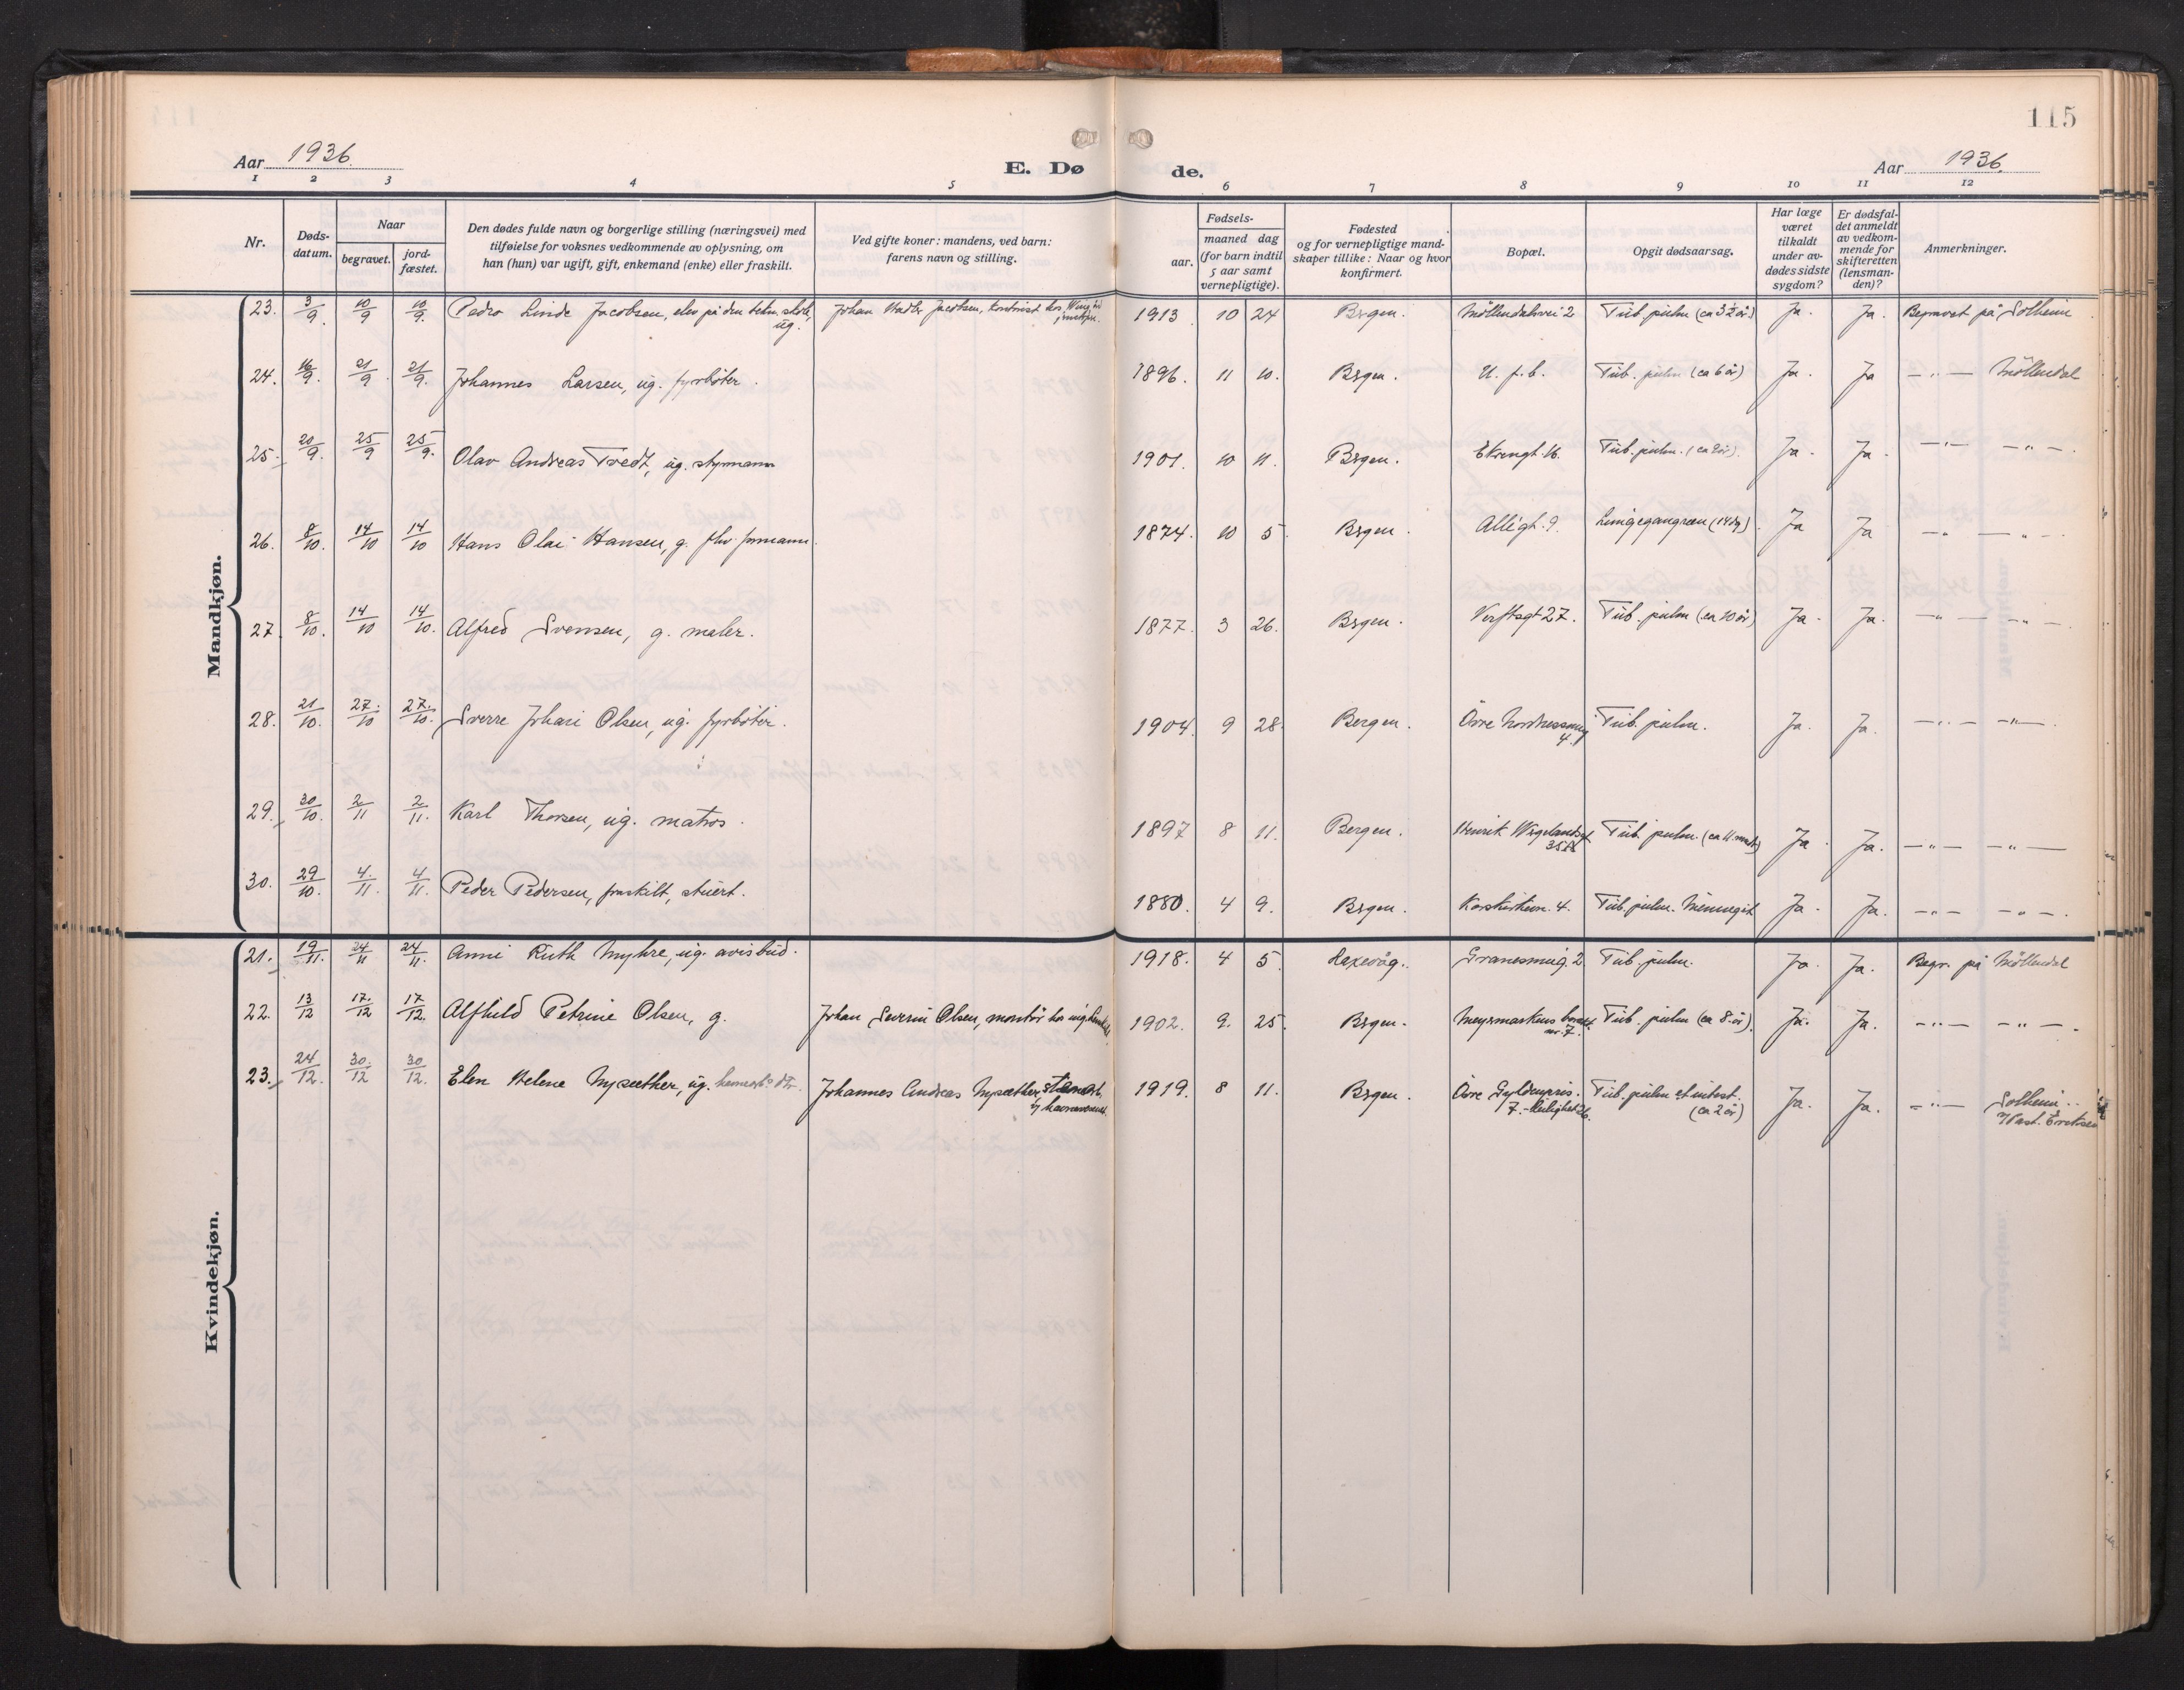 115
Aar 1936.
E. Dø
de.
Aar 1936.
1 2 3 4 5 6 7 8 9 10 11 12
Nr.
Døds-
datum.
Naar
begravet.
jord-
fæstet.
Den dødes fulde navn og borgerlige stilling (næringsvei) med
tilføielse for voksnes vedkommende av oplysning, om
han (hun) var ugift, gift, enkemand (enke) eller fraskilt.
Ved gifte koner: mandens, ved barn:
farens navn og stilling.
Fødsels-
aar.
maaned dag
(for barn indtil
5 aar samt
vernepligtige).
Fødested
og for vernepligtige mand-
skaper tillike: Naar og hvor
konfirmert.
Bopæl.
Opgit dødsaarsag.
Har læge
været
tilkaldt
under av-
dødes sidste
sygdom?
Er dødsfal-
det anmeldt
av vedkom-
mende for
skifteretten
(lensman-
den)?
Anmerkninger.
Mandkjøn.
23. 3/9 10/9 10/9. Pedro Linde Jacobsen, elev på den tekn. skole, ug. Johan Jacobsen, kontorist 1913 10 24 Bergen. Möllendalsvei 2 Tub. pulm (ca 3½ år) Ja. Ja. Begravet på Solheim
24. 16/9. 21/9 21/9. Johannes Larsen, ug. fyrbøter. 1896. 11 10. Bergen. U. f. b. Tub. pulm (ca 6 år) Ja. Ja —„— Möllendal
25. 20/9. 25/9 25/9. Olav Andreas Tvedt, ug. styrmann 1901. 10 11. Bergen. Ekrengt. 16. Tub. pulm. Ja. Ja. —„— —„—.
26. 8/10. 14/10 14/10 Hans Olai Hansen, g. fhv. formann. 1874. 10 5. Bergen. Allégt. 9. Lungegangræn (14 dg). Ja Ja —„— —„—.
27. 8/10. 14/10 14/10. Alfred Svensen, g. maler. 1877. 3 26. Bergen. Verftsgt 27. Tub. pulm (ca 10 år) Ja. Ja. —„— —„—.
28. 21/10. 27./10 27./10. Sverre Johan Olsen, ug. fyrbøter. 1904. 9 28. Bergen. Övre Nordnessmug 4. Tub. pulm. Ja. Ja. —„— —„—.
29. 30/10. 2/11 2/11. Karl Thorsen, ug. matros. 1897 8 11. Bergen. Henrik Wergelandsgt. 35A Tub. pulm. (ca 11 mdr) Ja. Ja. —„— —„—
30. 29/10. 4./11. 4/11. Peder Pedersen, fraskilt, stuert. 1880. 4 9. Bergen. Korskirkealm. 4. Tub. pulm. Meningit Ja. Ja. —„— —„—.
Kvindekjøn.
21. 19/11. 24/11 24/11. Anni Ruth Myhre, ug. avisbud. 1918. 4 5. Laxevåg. Granesmug. 2. Tub. pulm. Ja. Ja. Begr. på Möllendal
22. 13/12 17./12 17/12. Alfhild Petrine Olsen, g. Johan Severin Olsen, montör 1902. 9. 25. Bergen. Meyermarkens nr. 7. Tub. pulm (ca 8 år). Ja. Ja. —„— —„—.
23. 24/12. 30./12 30/12. Elen Helene Nysæther, ug. Johannes Andreas Nysæther, 1919. 8 11. Bergen. Övre Gyldenpris. 7. - leilighet 26. Tub. pulm et intest. (ca 2 år) Ja. Ja. —„— Solheim